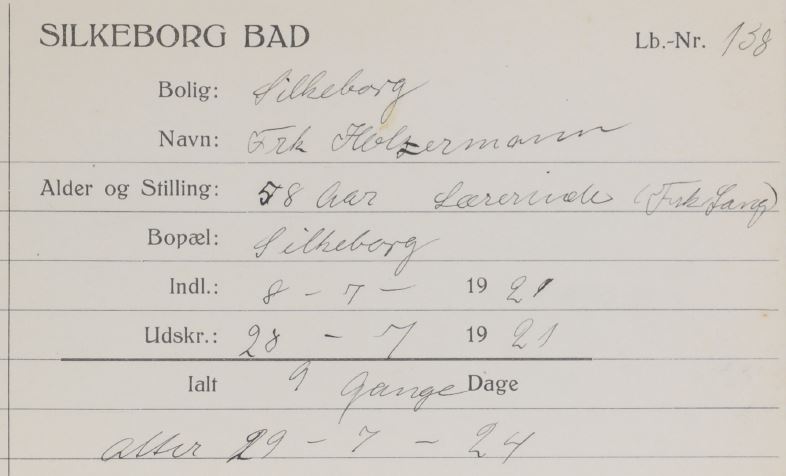 SILKEBORG BAD Lb.-Nr. 138
Bolig: Silkeborg
Navn: Frk Holzermann
Alder og Stilling: 58 Aar Lærerinde (Frk Lang)
Bopæl: Silkeborg
Indl.: 8 - 7 - 1921
Udskr.: 28 - 7 1921
Ialt 9 Gange Dage
atter 29 - 7 - 24